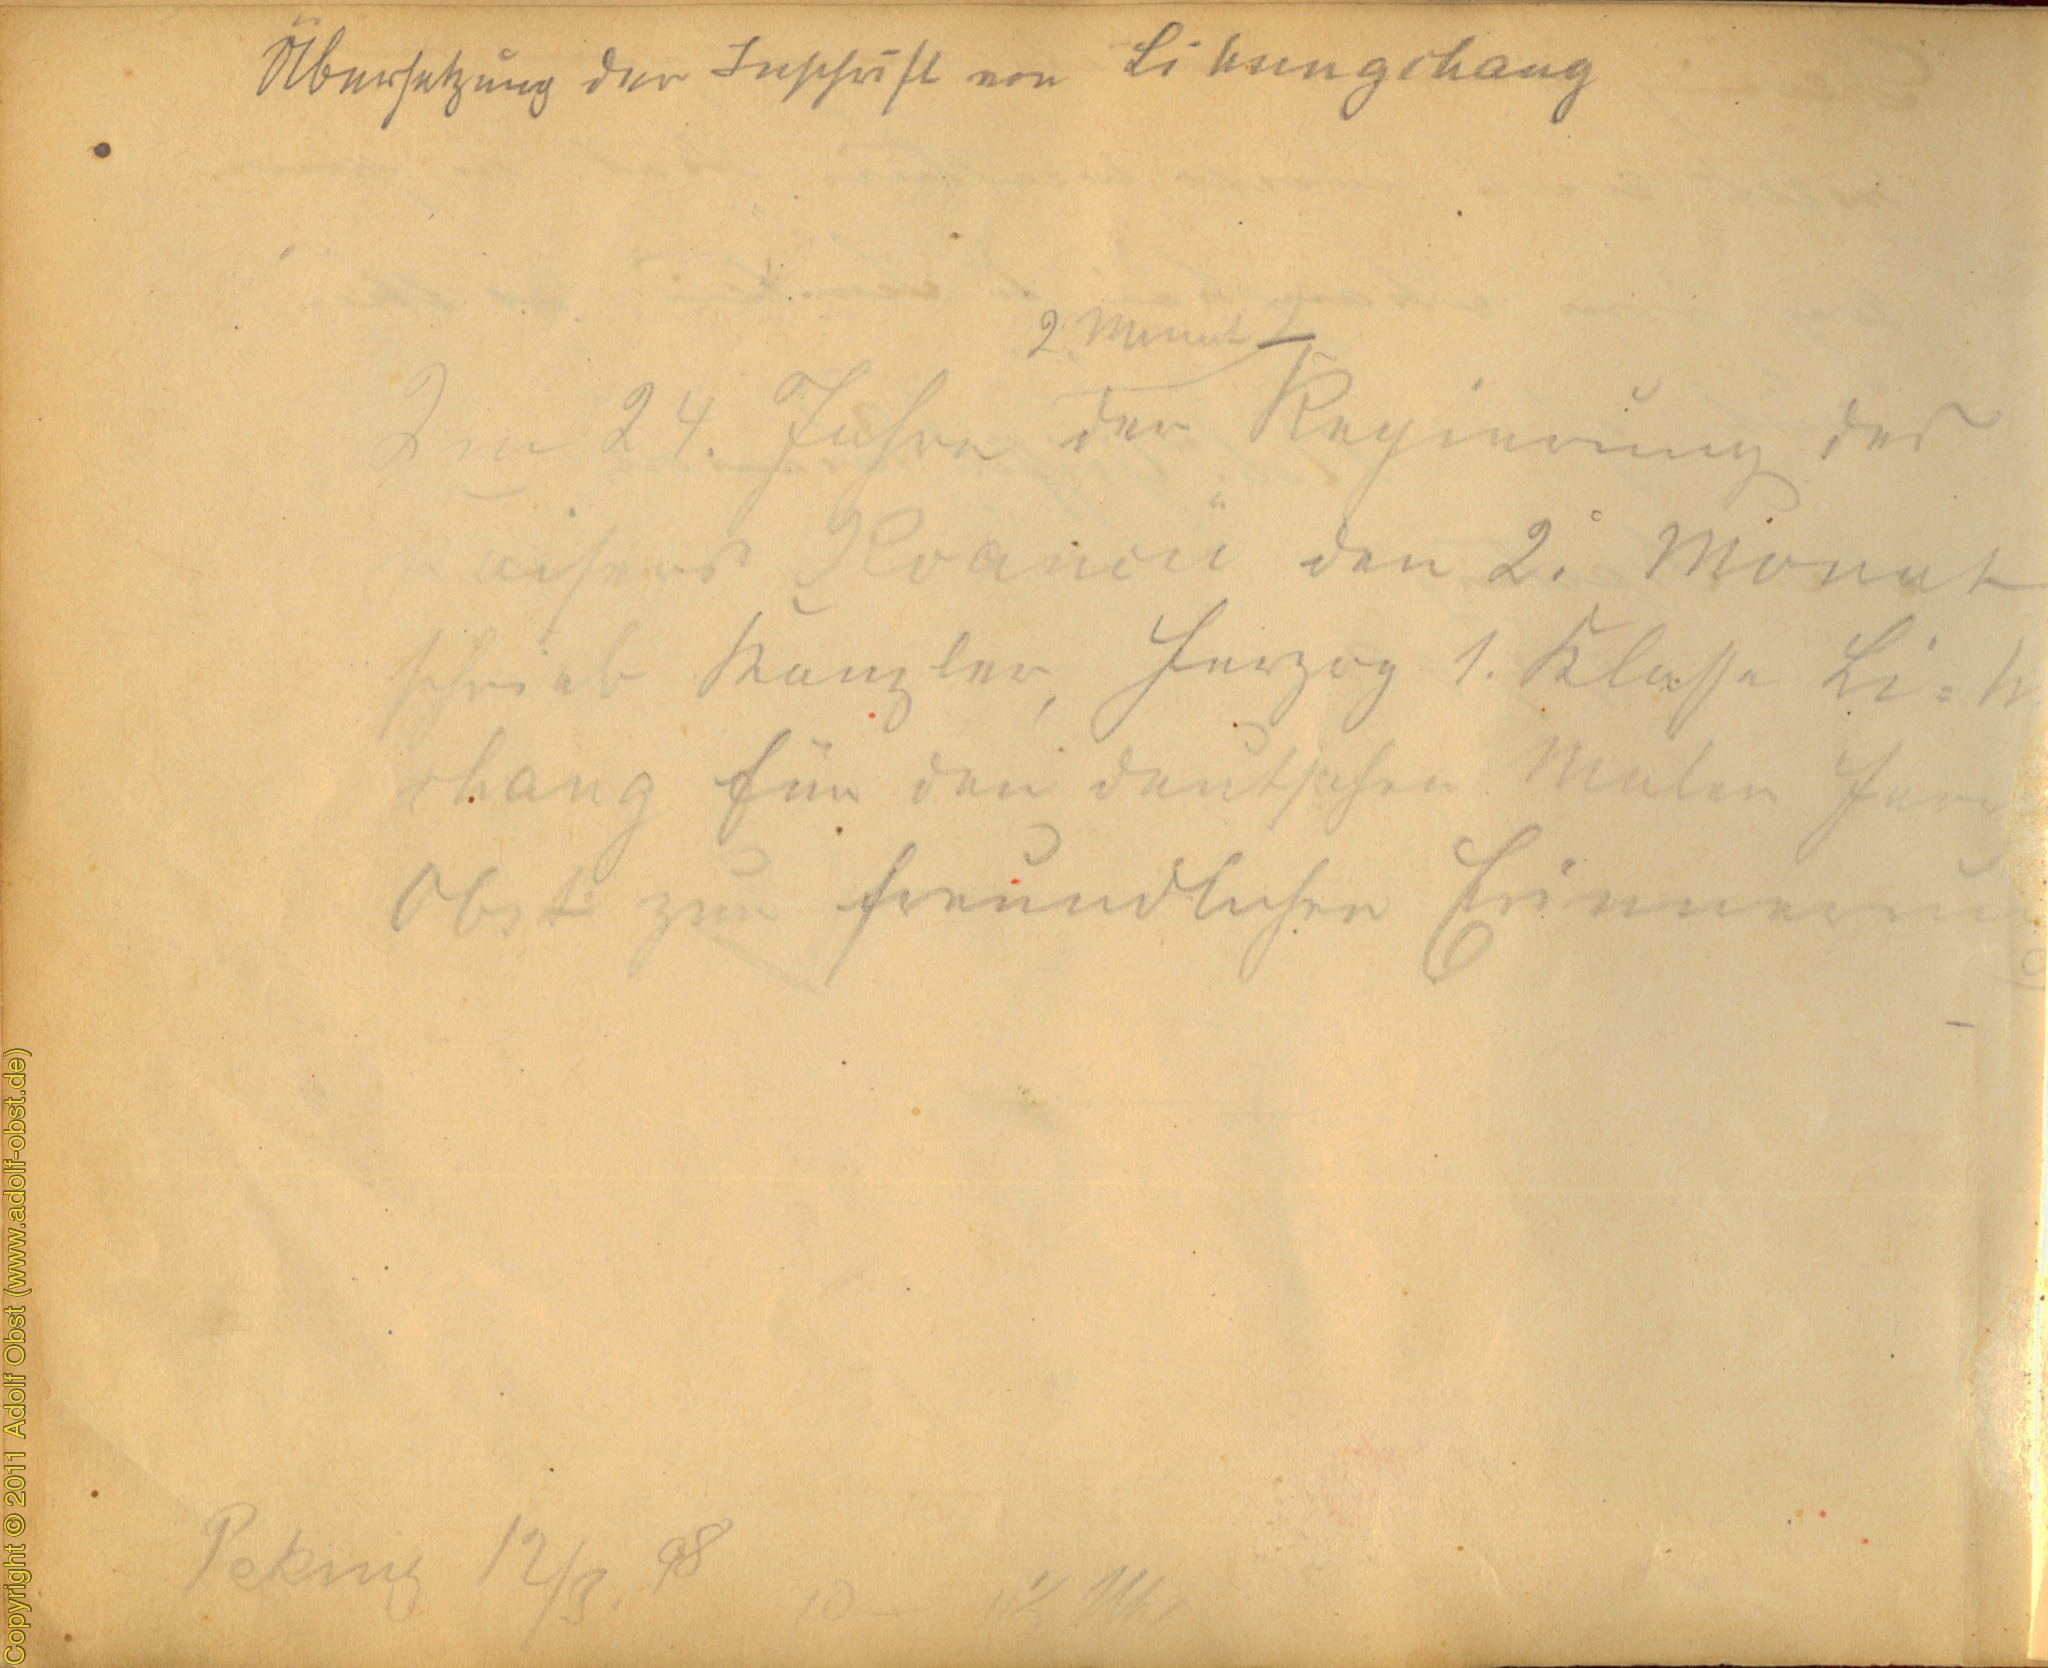 Übersetzung der Inschrift von Lihungchang
2. Monat
Im 24. Jahre der Regierung des
Kaisers Koancü den 2. Monat
schrieb Kanzler, Herzog 1. Klasse Li=h
chang für den deutschen Maler Herrn
Obst zur freundlichen Erinnerung
Peking 12/3. 98
10 — Uhr
Copyright © 2011 Adolf Obst (www.adolf-obst.de)